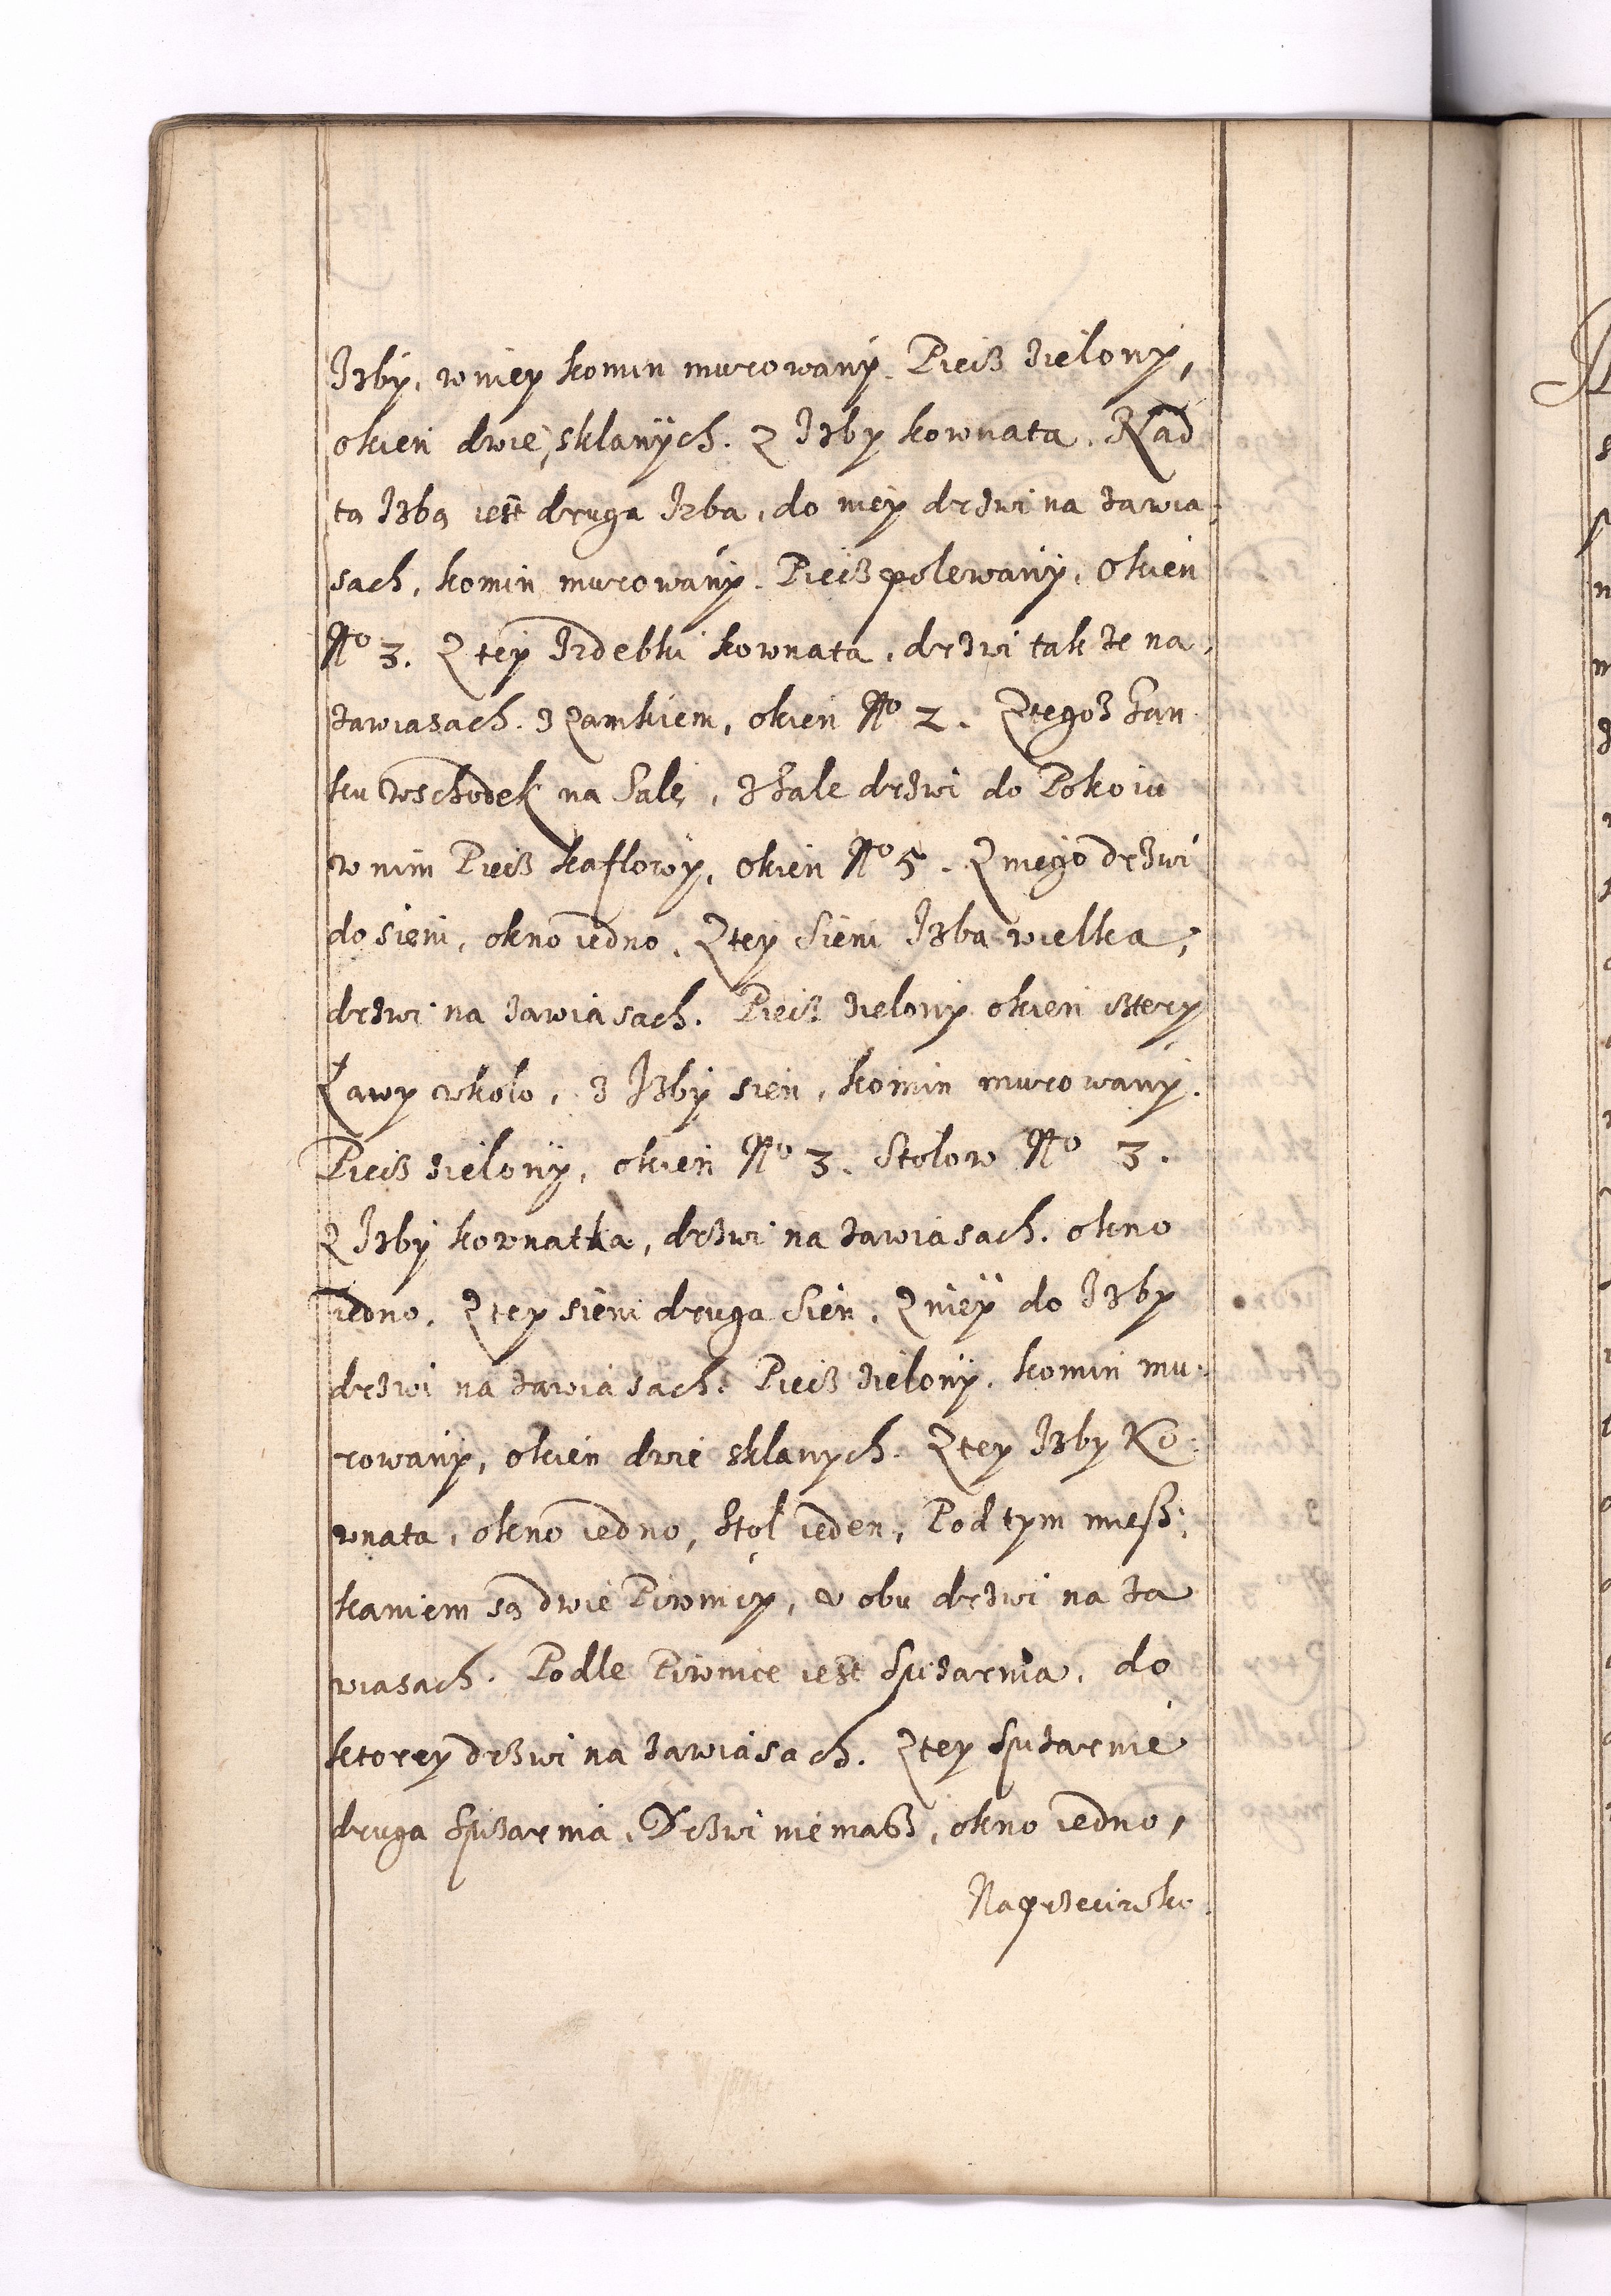 Izby, w niey komin murowany. Piecz zielony,
okien dwie, sklanych. Z Izby kownata. Nad
tą Izbą iest druga Izba, do niey drzwi na zawia-
sach, komin murowany. Piecz polewany. Okien
No 3. Z tey Izdebki kownata, drzwi takze na
zawiasach. z zamkiem, okien No 2. Z tegoz Gan
ku wschodek na Salę, z Sale drzwi do Pokoiu
w nim Piecz kaflowy, okien No 5. Z niego drzwi
do sieni, okno iedno. Z tey Sieni Izba wielka,
drzwi na zawiasach. Piecz zielony okien cztery
Ławy wkoło, z Izby sien, komin murowany.
Piecz zielony, okien No 3. Stolow No 3.
Z Izby kownatka, drzwi na zawiasach. okno
iedno. Z tey sieni druga Sien. Z niey do Izby
drzwi na zawiasach. Piecz zielony. komin mu-
rowany, okien dwie sklanych. Z tey Izby Ko-
wnata, okno iedno, Stol ieden, Pod tym miesz-
kaniem są dwie Piwnicy, v obu drzwi na za
wiasach. Podle Piwnice iest Spizarnia, do
ktorey drzwi na zawiasach. Z tey Spizarnie
druga Spizarnia. Drzwi niemasz, okno iedno,
Naprzeciwko